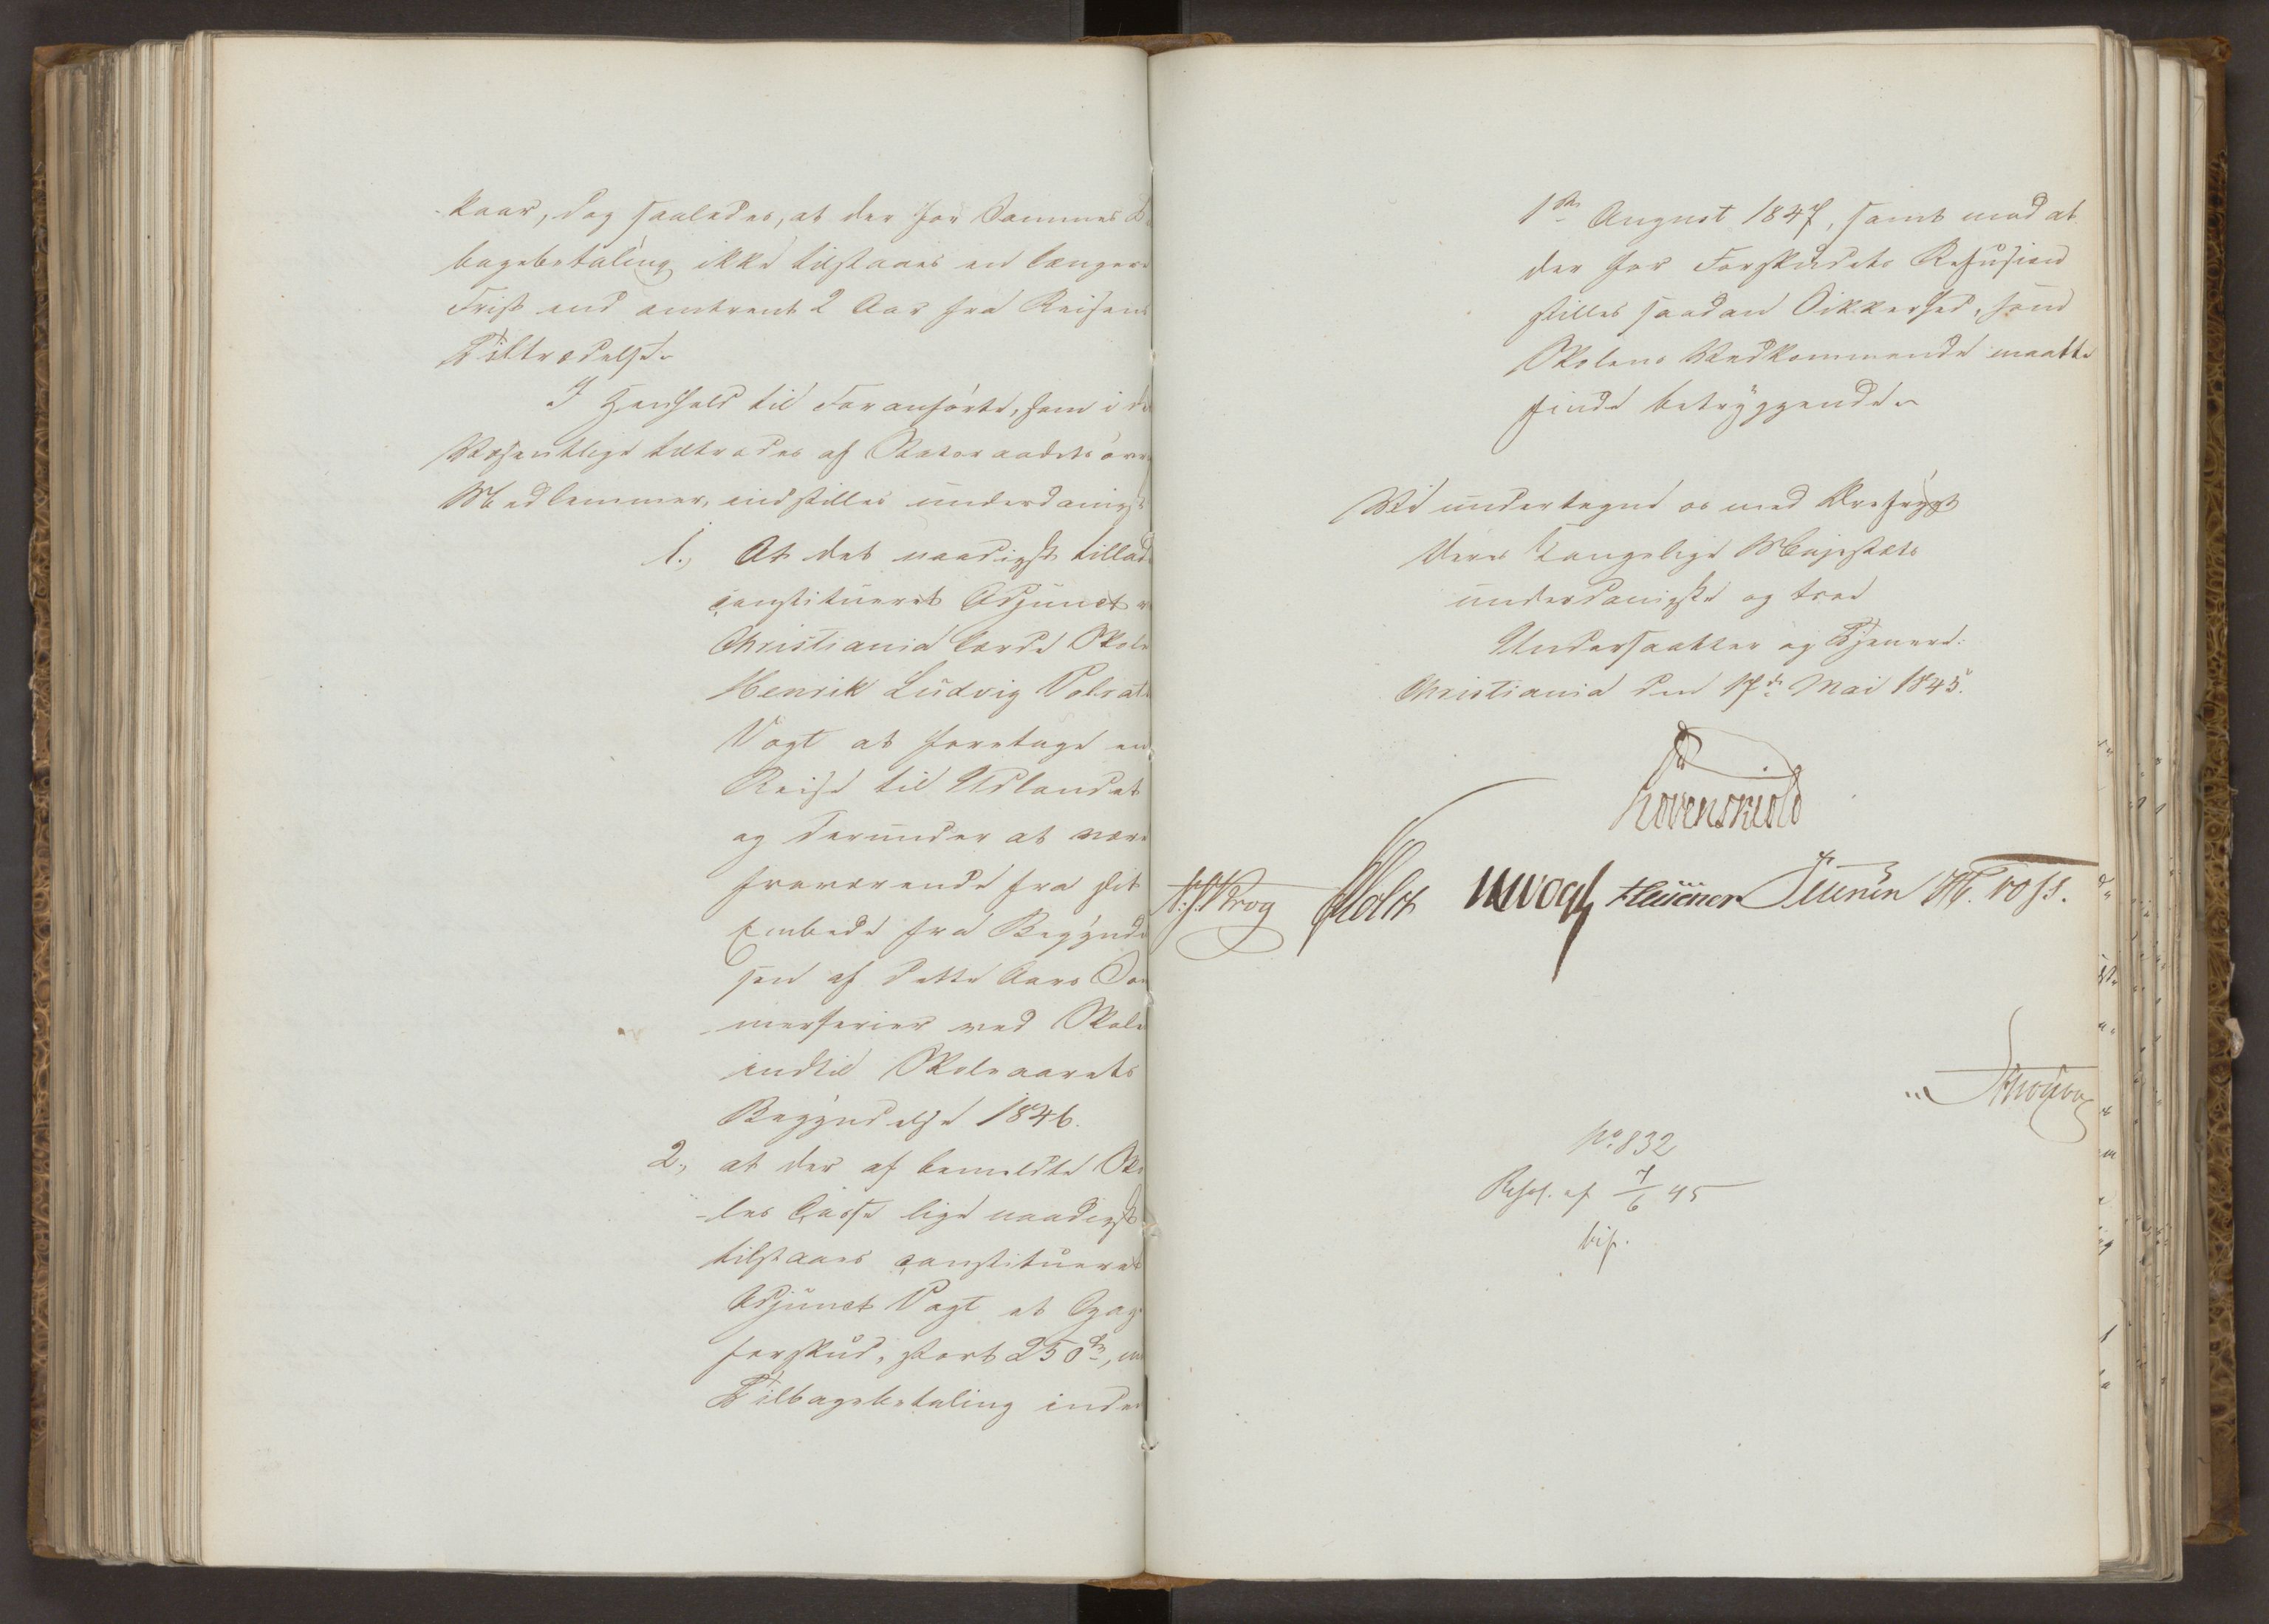 kaar, dog saaledes, at der for Sammes
bagebetaling ikke tilstaaes en længere
Frist end omtrent 2 Aar fra Reisens
Tiltrædelse.
I Henhold til Foranførte, som i de
Væsentlige tiltrædes af Statsraadets øvr
Medlemmer, indstilles underdanigst
1., At det naadigst tillad
constitueret Adjunct v
Christiania lærde Skole
Henrik Ludvig Volrath
Vogt at foretage en
Reise til Udlandet
og derunder at være
fraværende fra sit
Embede fra Begynd
sen af dette Aars Som
merferier ved Skole
indtil Skoleaarets
Begyndelse 1846.
2., at der af bemeldte Sko
les Casse lige naadigst
tilstaaes constitueret
Adjunct Vogt et Gage
forskud, stort 250, m
Tilbagebetaling inden
1ste August 1847, samt mod at
der for Forskudets Refusion
stilles saadan Sikkerhed, som
Skolens Vedkommende maatte
finde betryggende.
Vi undertegne os med Ærefrygt
Deres Kongelige Majestæts
underdanigste og troe
Undersaatter og Tjenere.
Christiania den 17de Mai 1845.
Løvenskiold
Krog Holst Vogt Sibbern Voss.
No. 832
Resol. af 7/6 45
bif.